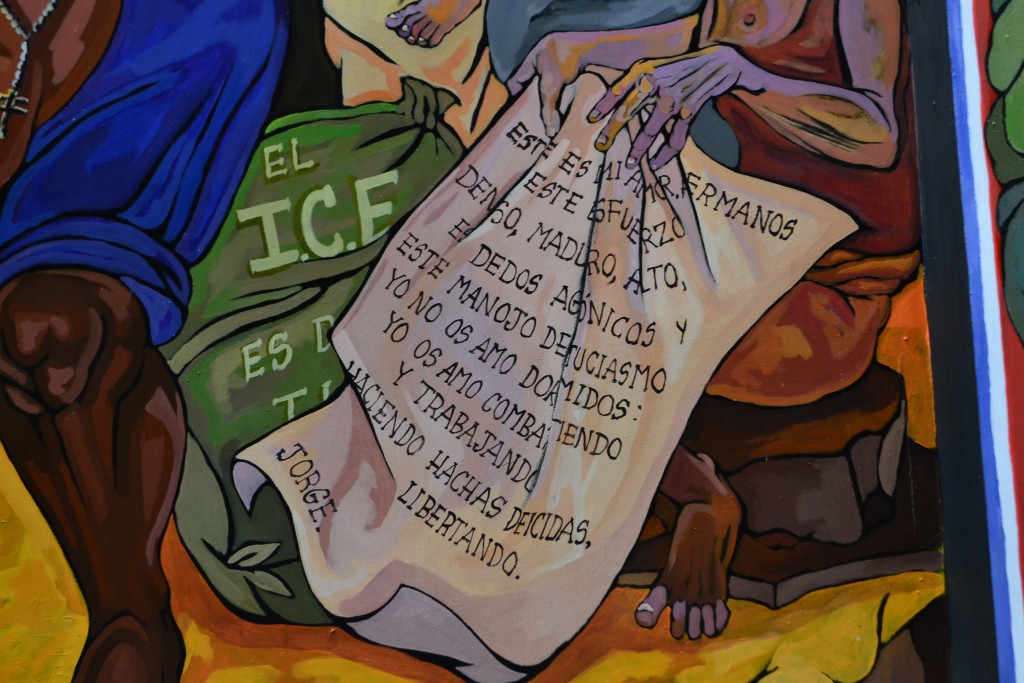 EL
I.C.E
ES D
ESTE ES MI AMOR, ERMANOS
ESTE ESFUERZO
DENSO, MADURO, ATO,
ES DEDOS AGÓNICOS Y
ESTE MANOJO DE FUCIASMO
YO NO OS AMO DORMIDOS:
YO OS AMO COMBATIENDO
Y TRABAJANDO
HACIENDO HACHAS DEICIDAS,
LIBERTANDO.
JORGE.